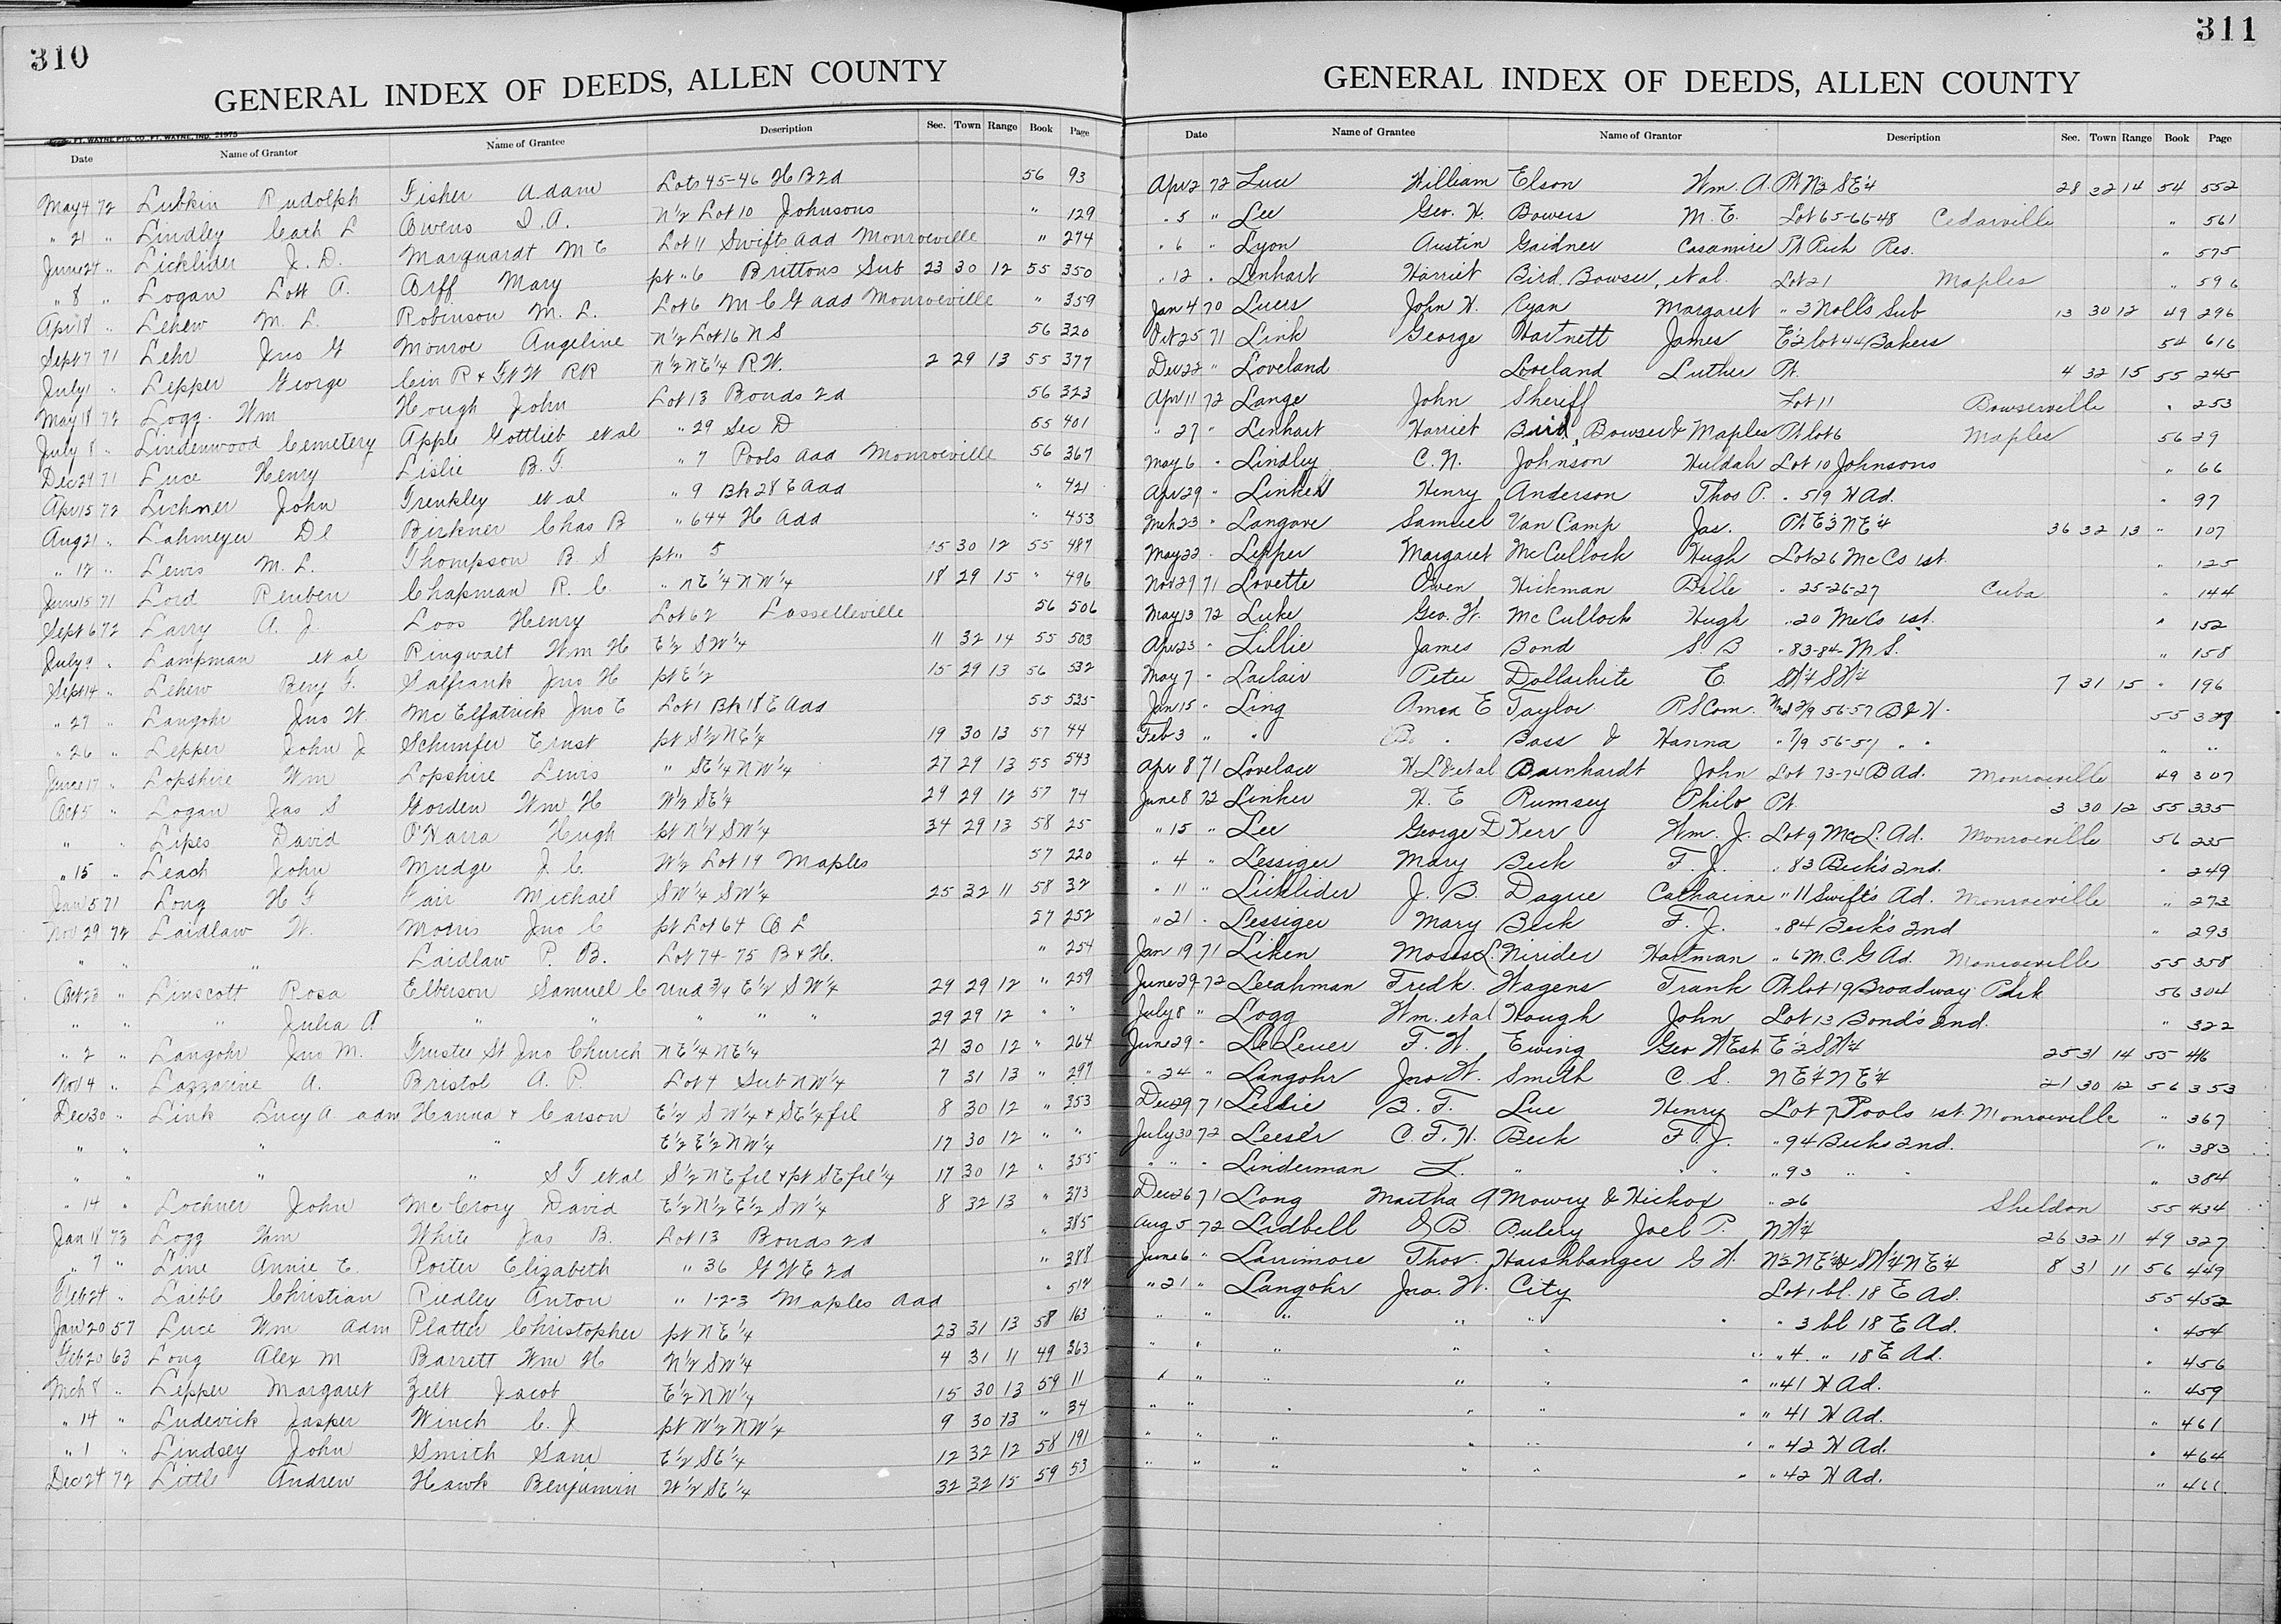 310
GENERAL INDEX OF DEEDS, ALLEN COUNTY
FT. WAYNE PTG. CO., FT. WAYNE, IND. 21975
Date Name of Grantor Name of Grantee Description Sec. Town Range Book Page
May 4 72 Lubkin Rudolph Fisher Adam Lots 45-46 H B 2d 56 93
" 21 " Lindley Cach L Owens I. A. N ½ Lot 10 Johnsons " 129
June 24 " Licklider J. D. Marquardt M E Lot 11 Swifts add Monroeville " 274
" 8 " Logan Lott A. Orff Mary pt " 6 Brittons Sub 23 30 12 55 350
Apr 18 " Lehew M. L. Robinson M. L. Lot 6 M C G add Monroeville " 359
Sept 7 71 Lehr Jno G Monroe Angeline N ½ Lot 16 N S 56 320
July 1 " Lepper George Cin R & Ft W RR N ½ N E ¼ R.W. 2 29 13 55 377
May 18 72 Logg Wm Hough John Lot 13 Bonds 2d 56 323
July 8 " Lindenwood Cemetery Apple Gottlieb et al " 29 Sec D 55 401
Dec 29 71 Luce Henry Leslie B. F. " 7 Pools add Monroeville 56 367
Apr 15 72 Lichner John Trenkley et al " 9 Bk 28 E add " 421
Aug 21 " Lahmeyer Dl Birkner Chas B " 644 H Add " 453
" 12 " Lewis M. L. Thompson B. S pt " 5 15 30 12 55 487
June 15 71 Lord Reuben Chapman R. C " N E ¼ N W ¼ 18 29 15 " 496
Sept 6 72 Larry A. J. Loos Henry Lot 62 Lasselleville 56 506
July 9 " Lampman et al Ringwalt Wm H E ½ S W ¼ 11 32 14 55 503
Sept 14 " Lehew Benj F. Salfrank Jno H pt E ½ 15 29 13 56 532
" 27 " Langohr Jno W. McElfatrick Jno E Lot 1 Bk 18 E Add 55 525
" 26 " Lepper John J Schimfer Ernst pt S ½ N E ¼ 19 30 13 57 44
June 17 " Lopshire Wm Lopshire Lewis " S E ¼ N W ¼ 27 29 13 55 543
Oct 5 " Logan Jas S Gorden Wm H W ½ S E ¼ 29 29 12 57 74
" " Lipes David O'Harra Hugh pt N ½ S W ¼ 34 29 13 58 25
" 15 " Leach John Mudge J. C. W ½ Lot 19 Maples 57 220
Jan 5 71 Long H F Fair Michael S W ¼ S W ¼ 25 32 11 58 32
Nov 29 72 Laidlaw W. Morris Jno C pt Lot 64 C L 57 252
" " " Laidlaw P. B. Lot 74-75 B & H. " 254
Oct 23 " Linscott Rosa Elberson Samuel C Und ¾ E ½ S W ¼ 29 29 12 " 259
" " " Julia A " " " " " 29 29 12 " "
" 2 " Langohr Jno M. Trustee St Jno Church N E ¼ N E ¼ 21 30 12 " 264
Nov 4 " Lazzarine A. Bristol A. P. Lot 4 Sub N W ¼ 7 31 13 " 297
Dec 30 " Link Lucy A adm Hanna & Carson E ½ S W ¼ & S E ¼ frl 8 30 12 " 353
" " " " E ½ E ½ N W ¼ 17 30 12 " "
" " " " S T et al S ½ N E frl & pt S E frl ¼ 17 30 12 " 355
" 14 " Lochner John McCrory David E ½ N ½ E ½ S W ¼ 8 32 13 " 373
Jan 18 73 Logg Wm White Jas B. Lot 13 Bonds 2d " 385
" 7 " Line Annie E. Porter Elizabeth " 36 G W E 2d " 388
Feb 24 " Laible Christian Riedley Anton " 1-2-3 Maples add " 517
Jan 20 57 Luce Wm adm Platter Christopher pt N E ¼ 23 31 13 58 163
Feb 20 63 Long Alex M Barrett Wm H N ½ S W ¼ 4 31 11 49 363
Mch 8 " Lepper Margaret Zelt Jacob E ½ N W ¼ 15 30 13 59 11
" 14 " Ludevick Jasper Winch C. J pt W ½ N W ¼ 9 30 13 " 34
" 1 " Lindsey John Smith Sam E ½ S E ¼ 12 32 12 58 191
Dec 24 72 Little Andrew Hawk Benjamin W ½ S E ¼ 32 32 15 59 53
311
GENERAL INDEX OF DEEDS, ALLEN COUNTY
Date Name of Grantee Name of Grantor Description Sec. Town Range Book Page
Apr 2 72 Luce William Elson Wm. A. Pt N ½ S E ¼ 28 32 14 54 552
" 5 " Lee Geo. H. Bowers M. E. Lot 65-66-48 Cedarville " 561
" 6 " Lyon Austin Gaidner Casamire Pt Rich Res. " 575
" 12 " Lenhart Harriet Bird, Bowser, et al. Lot 21 Maples " 596
Jan 4 70 Luers John H. Ryan Margaret " 3 Nolls Sub 13 30 12 49 296
Oct 25 71 Link George Hartnett James E ½ lot 44 Bakers 54 616
Dec 22 " Loveland Loveland Luther Pt. 4 32 15 55 245
Apr 11 72 Lange John Sheriff Lot 11 Bowserville " 253
" 27 " Lenhart Harriet Bird, Bowser & Maples Pt lot 6 Maples 56 29
May 6 " Lindley C. N. Johnson Huldah Lot 10 Johnsons " 66
Apr 29 " Linker Henry Anderson Thos P. " 519 H Ad. " 97
Mch 23 " Langove Samuel Van Camp Jas. Pt E ½ N E ¼ 36 32 13 " 107
May 22 " Lepper Margaret McCullock Hugh Lot 26 McCs 1st. " 125
Nov 29 71 Lovette Owen Hickman Belle " 25-26-27 Cuba " 144
May 13 72 Luke Geo. W. McCullock Hugh " 20 McCs 1st. " 152
Apr 23 " Lillie James Bond S. B " 83-84 M S. " 158
May 7 " Laclair Peter Dollarhite E. S W ¼ S W ¼ 7 31 15 " 196
Jan 15 " Ling Amea E Taylor R S Com. Und 2/9 56-57 B & H. 55 329
Feb 3 " " B. " Bass & Hanna " 7/9 56-57 " " " "
Apr 8 71 Lovelace H L & et al Barnhardt John Lot 73-74 B Ad. Monroeville 49 307
June 8 72 Linker H. E Rumsey Philo Pt. 3 30 12 55 335
" 15 " Lee George D Kerr Wm. J. Lot 9 McL. Ad. Monroeville 56 235
" 4 " Lessiger Mary Beck F. J. " 83 Beck's 2nd. " 249
" 11 " Licklider J. B. Dague Catharine " 11 Swift's Ad. Monroeville " 273
" 21 " Lessiger Mary Beck F. J. " 84 Beck's 2nd " 293
Jan 19 71 Liken Moses L. Nirider Hartman " 6 M. C. G Ad. Monroeville 55 358
June 29 72 Lerahman Fredk. Hagens Frank Pt lot 19 Broadway Park 56 304
July 8 " Logg Wm. et al Hough John Lot 13 Bond's 2nd. " 322
June 29 " LeLeuer F. W. Ewing Geo W Est. E ½ S W ¼ 25 31 14 55 416
" 24 " Langohr Jno W. Smith C. S. N E ¼ N E ¼ 21 30 12 56 353
Dec 29 71 Leslie B. F. Luc Henry Lot 7 Pools 1st. Monroeville " 367
July 30 72 Leeser C. F. W. Beck F. J. " 94 Becks 2nd. " 383
" " " Linderman L. " " " 93 " " " 384
Dec 26 71 Long Martha A Mowry & Hickox " 26 Sheldon 55 434
Aug 5 72 Lidbell J. B. Bulery Joel P. N W ¼ 26 32 11 49 327
June 6 " Larrimore Thos. Harshbanger G W. N ½ N E ¼ & S W ¼ N E ¼ 8 31 11 56 449
" 21 " Langohr Jno. W. City Lot 1 bl. 18 E Ad. 55 452
" " " " " " " 3 bl 18 E Ad. " 454
" " " " " " " 4 " 18 E Ad. " 456
" " " " " " " 41 H Ad. " 459
" " " " " " " 41 H Ad. " 461
" " " " " " " 42 H Ad. " 464
" " " " " " " 42 H Ad. " 466